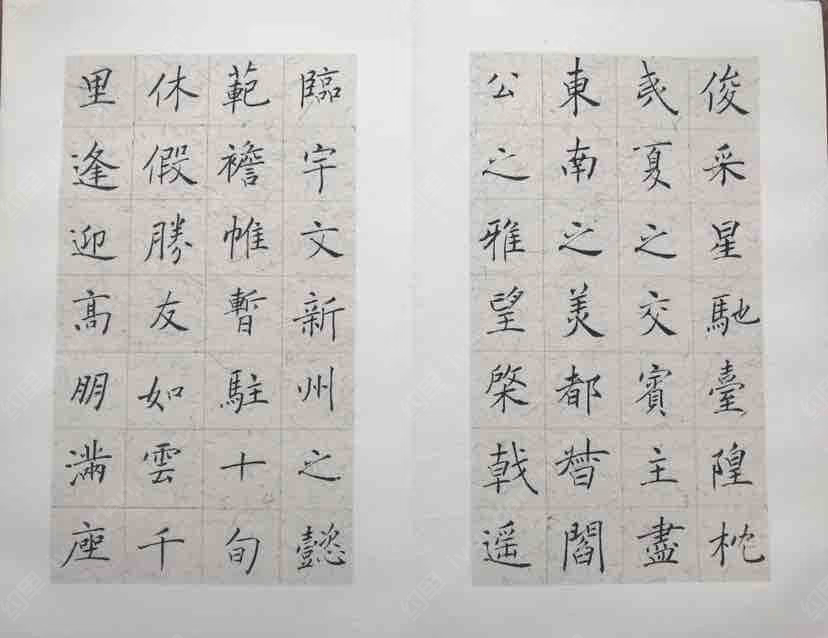 俊采星馳臺隍枕
夷夏之交賓主盡
東南之美都督閻
公之雅望棨戟遥
臨宇文新州之懿
範襜帷暫駐十旬
休假勝友如雲千
里逢迎高朋滿座